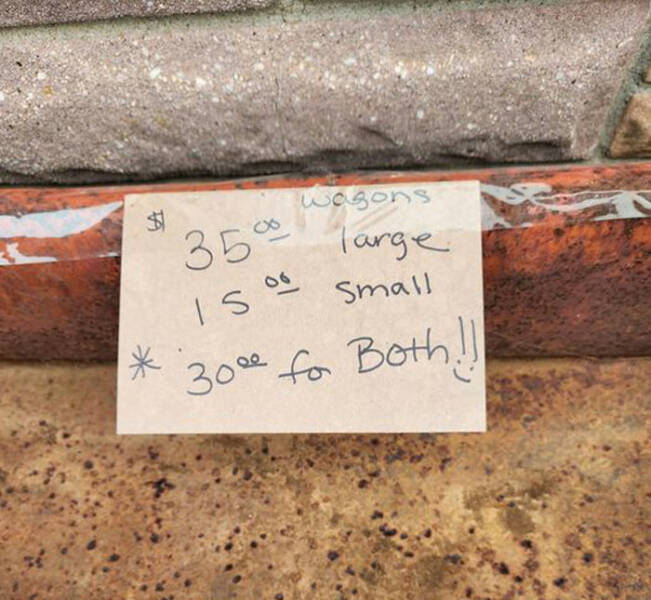 wagons
$ 35⁰⁰ large
15⁰⁰ small
* 30⁰⁰ for Both!!